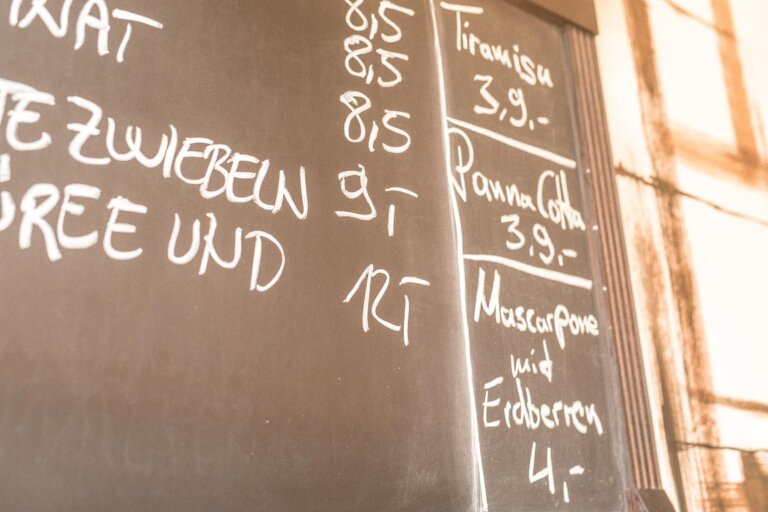 8,5
8,5
8,5
ZWIEBELN 9,-
UND
12,-
Tiramisu
3,9.-
Panna Cotta
3,9.-
Mascarpone
mit
Erdberren
4,-